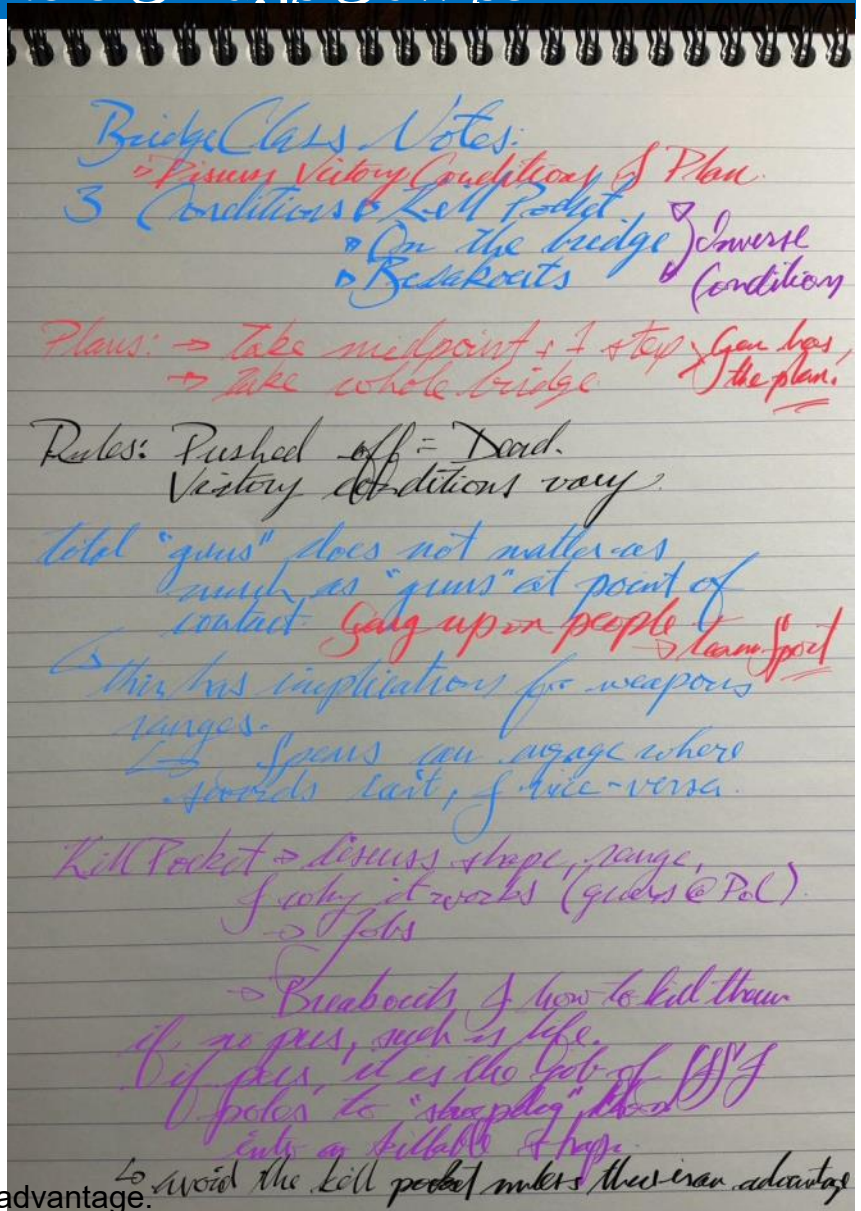 Bridge Class Notes:
▹ Discuss Victory Conditions & Plan.
3 Conditions ▹ Kill Pocket
▹ On the bridge
▹ Breakouts
Inverse
Condition
Plans: → Take midpoint + 1 step
→ Take whole bridge
Gen has
the plan.
Rules: Pushed off = Dead.
Victory conditions vary
total "guns" does not matter as
much as "guns" at point of
contact. Gang up on people
→ team sport
↳ this has implications for weapons
ranges.
↳ Spears can engage where
swords can't, & vice-versa.
Kill Pocket → discuss shape, range,
& why it works (guns @ PoC).
→ Jobs
→ Breakouts & how to kill them
if no res, such is life.
if res, it is the job of &
poles to "sheepdog" them
into a killable shape.
↳ avoid the kill pocket unless there is an advantage
advantage.